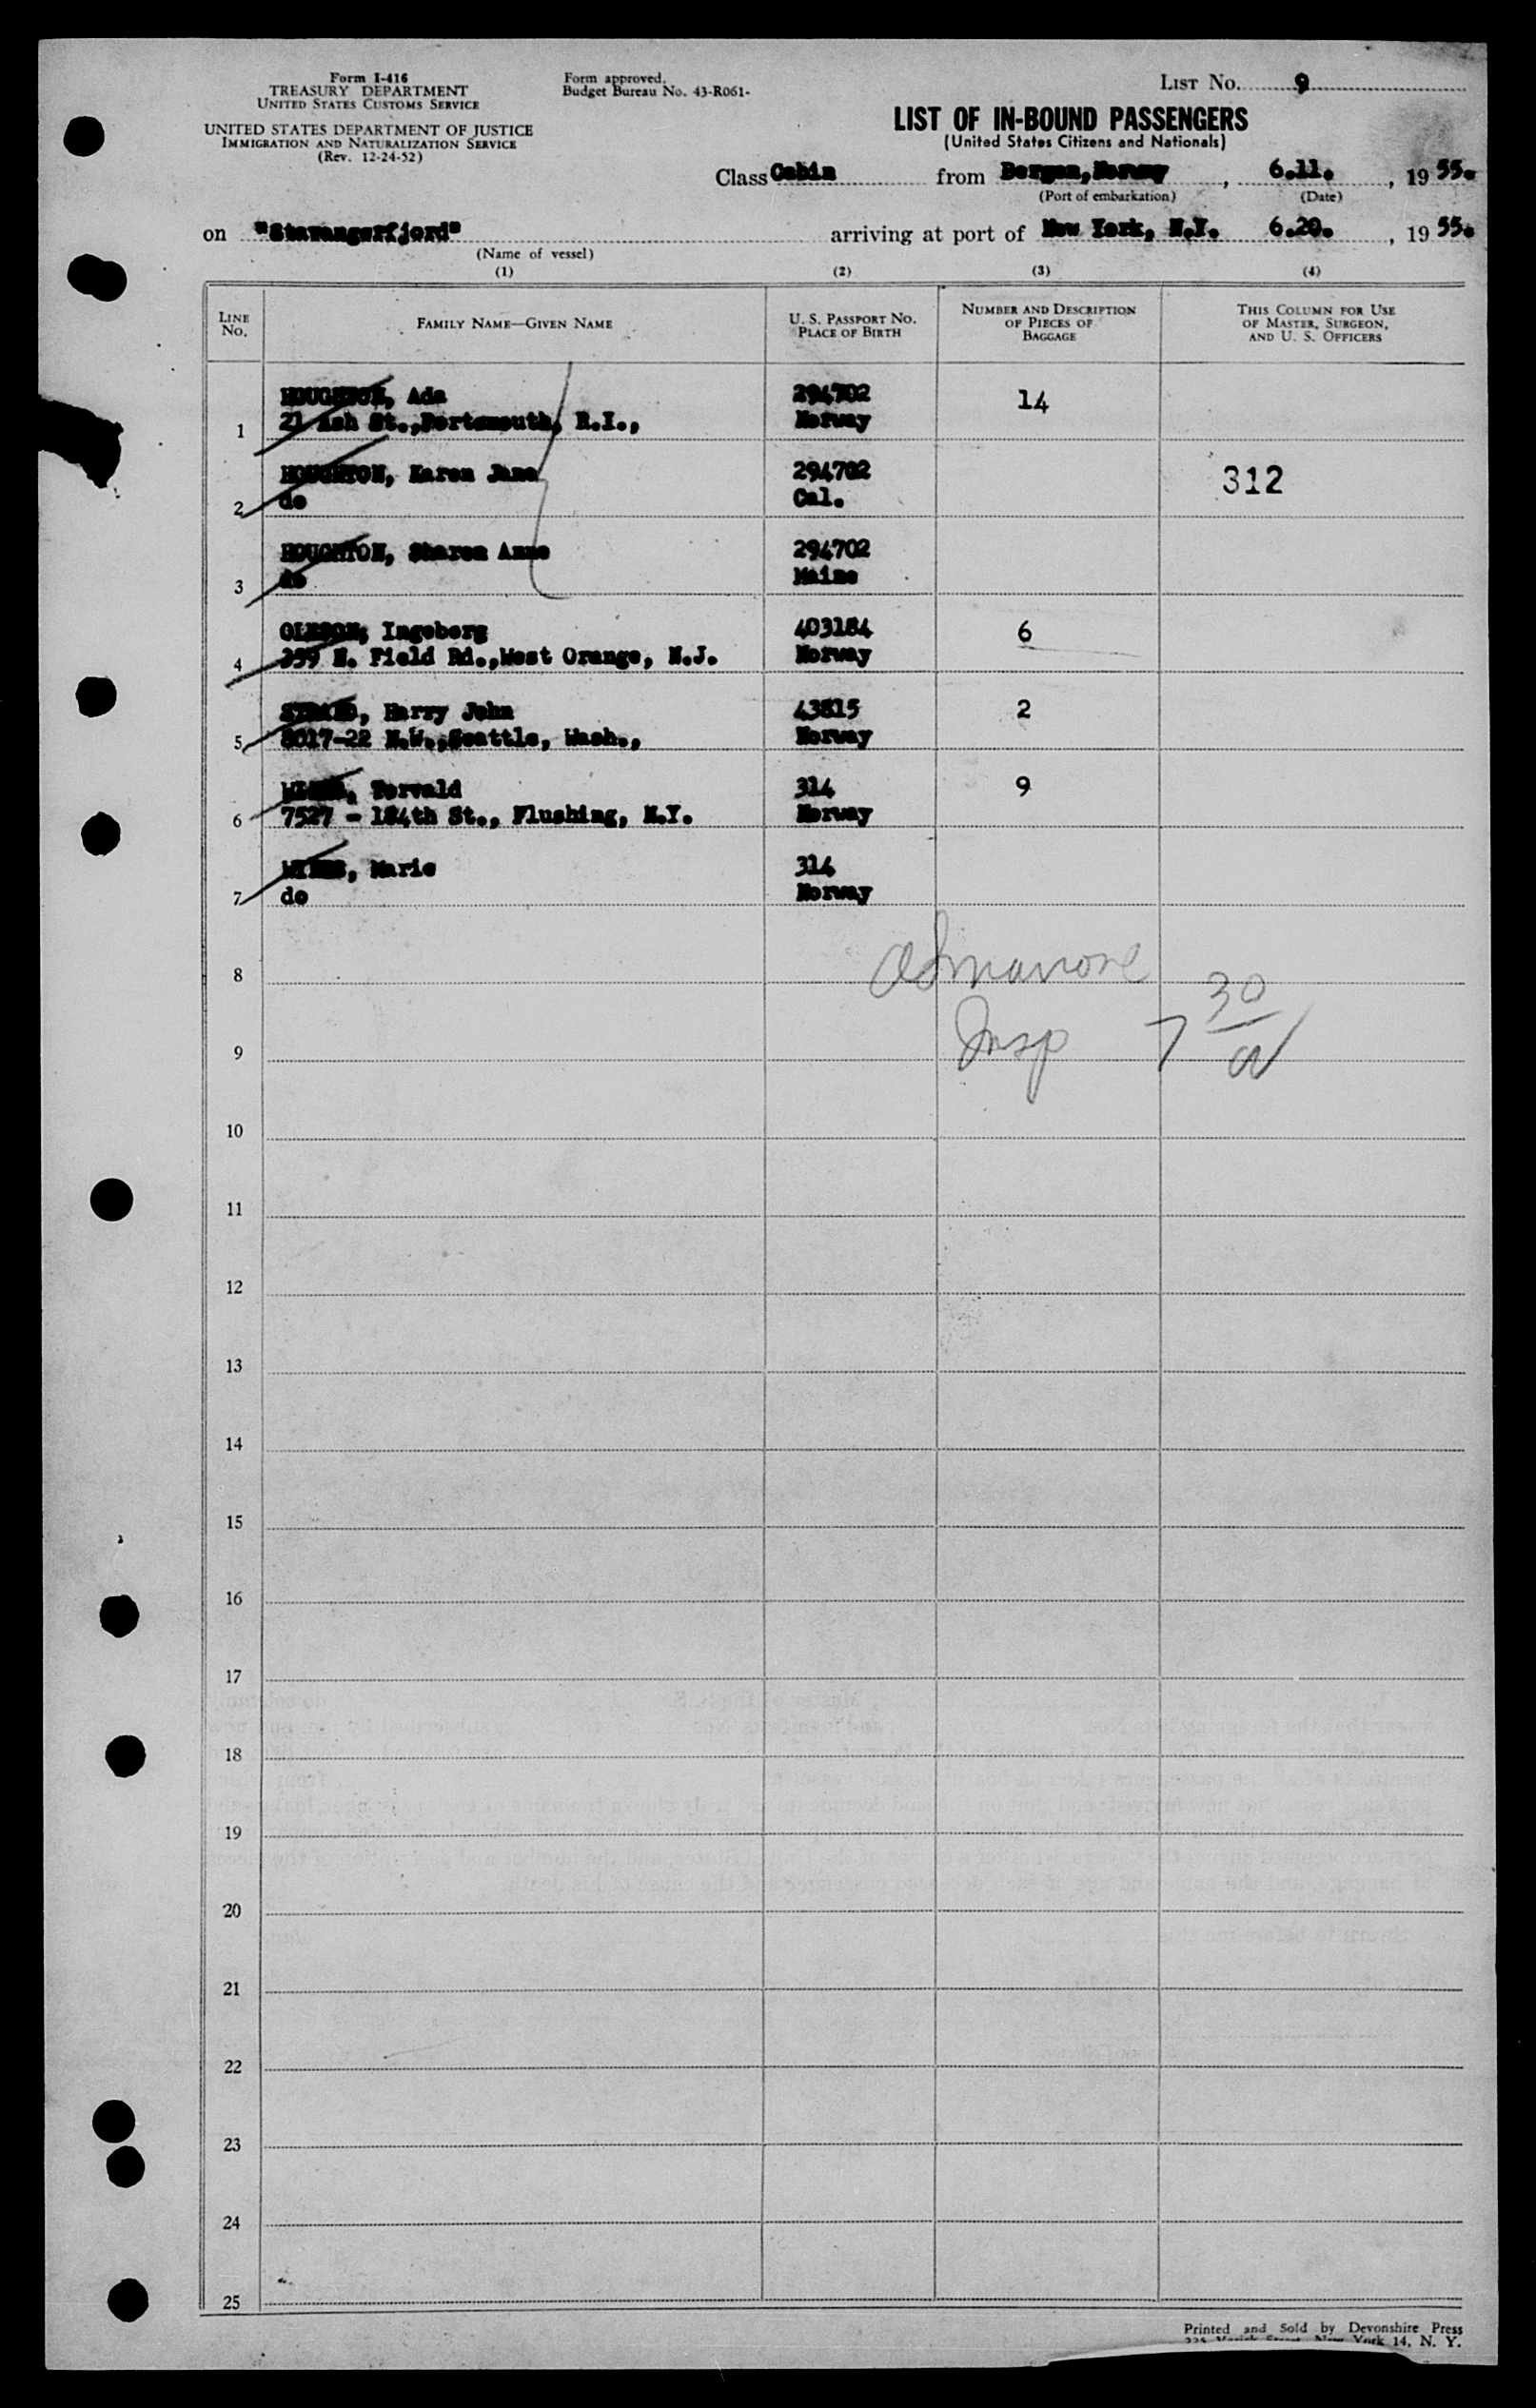 Form I-416
TREASURY DEPARTMENT
UNITED STATES CUSTOMS SERVICE
UNITED STATES DEPARTMENT OF JUSTICE
IMMIGRATION AND NATURALIZATION SERVICE
(Rev. 12-24-52)
Form approved.
Budget Bureau No. 43-R061-
LIST No. 9
LIST OF IN-BOUND PASSENGERS
(United States Citizens and Nationals)
Class Cabin from Bergen, Norway, 6.11., 1955.
(Port of embarkation) (Date)
on "Stavangerfjord" arriving at port of New York, N.Y. 6.20., 1955.
(Name of vessel)
(1) (2) (3) (4)
LINE No. FAMILY NAME—GIVEN NAME U. S. PASSPORT No. PLACE OF BIRTH NUMBER AND DESCRIPTION OF PIECES OF BAGGAGE THIS COLUMN FOR USE OF MASTER, SURGEON, AND U. S. OFFICERS
HOUGHTON, Ada 294702 14
1 21 Ash St.,Portsmouth, R.I., Norway
HOUGHTON, Karen Jane 294702 312
2 do Cal.
HOUGHTON, Sharon Anne 294702
3 do Maine
OLESON, Ingeborg 403184 6
4 359 N. Field Rd.,West Orange, N.J. Norway
Harry John 43815 2
5 8017-22 N.W.,Seattle, Wash., Norway
Torvald 314 9
6 7527 - 184th St., Flushing, N.Y. Norway
Marie 314
7 do Norway
8
Insp 7 30/a
9
10
11
12
13
14
15
16
17
18
19
20
21
22
23
24
25
Printed and Sold by Devonshire Press
225 Varick Street, New York 14, N. Y.